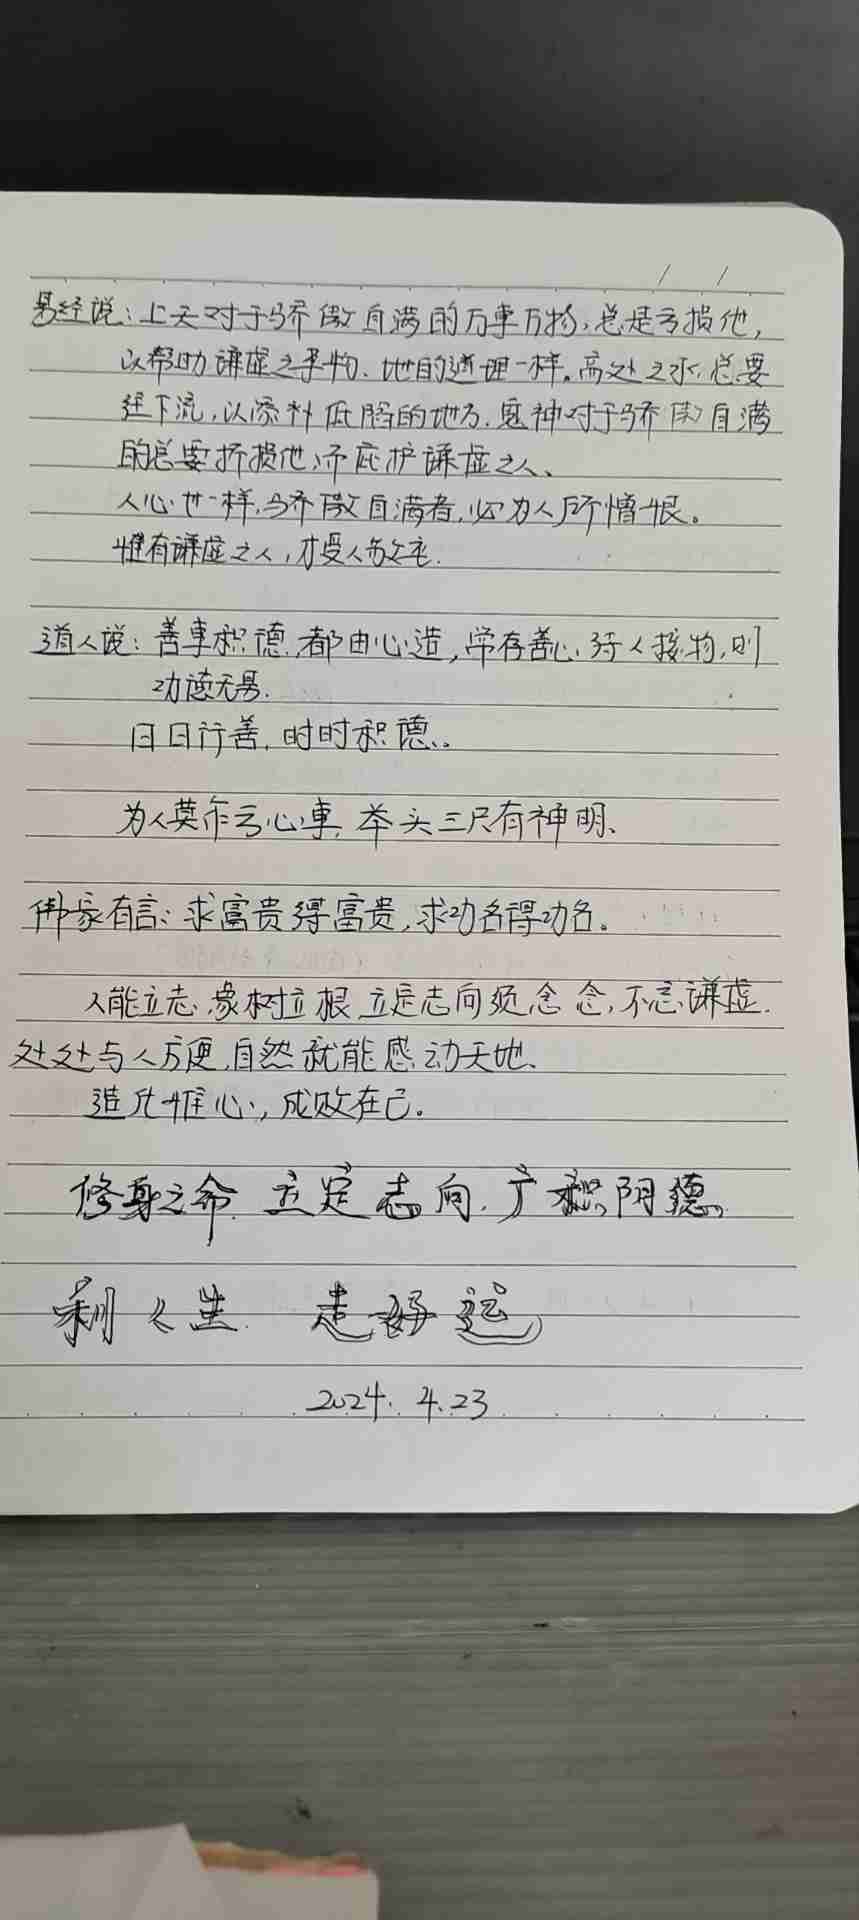 易经说：上天对于骄傲自满的万事万物，总是亏损他，
以帮助谦虚之事物、地的道理一样。高处之水，总要
往下流，以添补低陷的地方．鬼神对于骄傲自满
的总要折损他，而庇护谦虚之人、
人心也一样，骄傲自满者，必为人所憎恨。
惟有谦虚之人，才受人
道人说：善事积德，都由心造，常存善心、待人接物，则
功德无
日日行善，时时积德。
为人莫作亏心事，举头三尺有神明、
佛家有言：求富贵得富贵，求功名得功名。
人能立志、象树立根 立定志向须念念，不忘谦虚．
处处与人方便，自然就能感动天地、
造化惟心，成败在己。
修身之命．立定志向．广积阴德、
利人生．走好运
2024.4.23